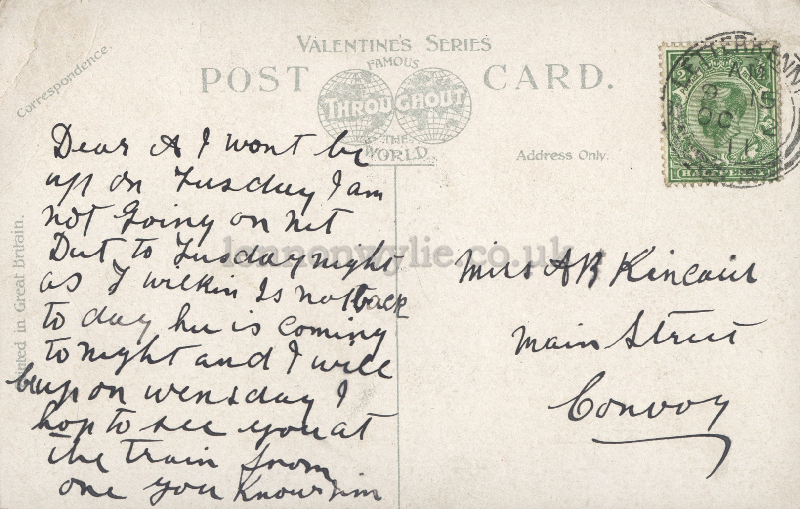 VALENTINE'S SERIES
POST CARD.
FAMOUS
THROUGHOUT
THE
WORLD
Correspondence.
Address Only.
Printed in Great Britain.
LETTERKENNY
HALFPENNY
Dear A I wont be
up on Tusday I am
not Going on nit
Dut to Tusday night
as I wilkin Is not back
to day hu is coming
to night and I will
be up on wensday I
hop to see you at
the train from
one you know
Miss AB Kincaid
Main Street
Convoy
lennonwylie.co.uk